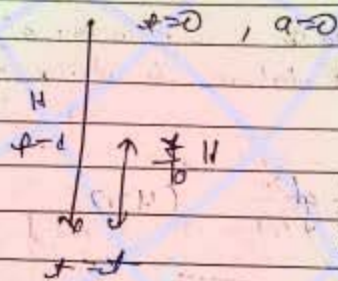 t=0 , a=0
H
t-1
7/16 H
t = t